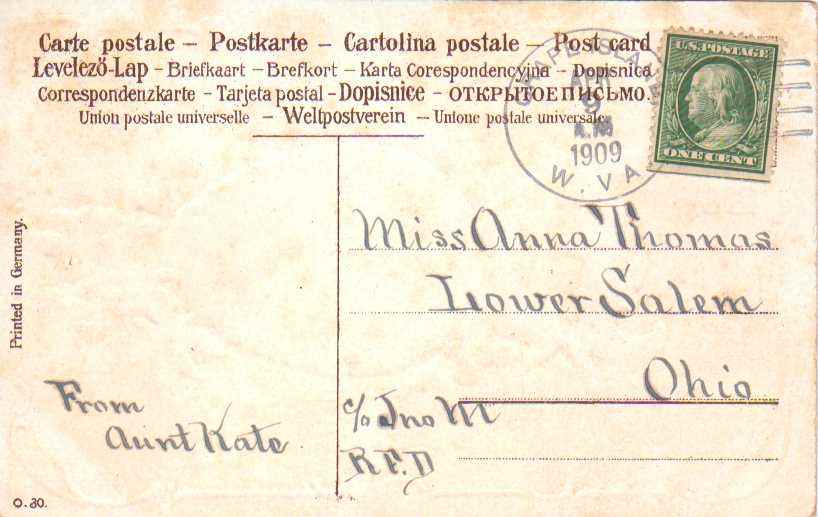 Carte postale – Postkarte – Cartolina postale – Post card
Levelező-Lap – Briefkaart – Brefkort – Karta Corespondencyjna – Dopisnica
Correspondenzkarte – Tarjeta postal – Dopisnice – ОТКРЫТОЕ ПИСЬМО.
Union postale universelle – Weltpostverein – Unione postale universale.
9
A.M
1909
W. VA
U.S. POSTAGE
ONE CENT
Miss Anna Thomas
Lower Salem
Ohio
c/o Jno M
R.F.D
From
Aunt Kate
Printed in Germany.